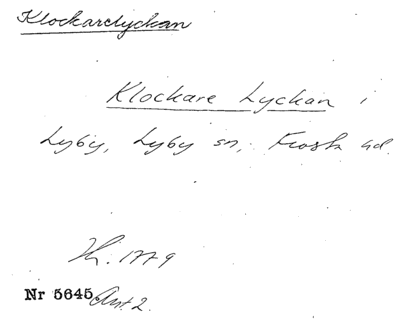 Klockarelyckan
Klockare Lyckan i
Lyby, Lyby sn, Frosta hd.
1779
Nr 5645 Ant. 2.